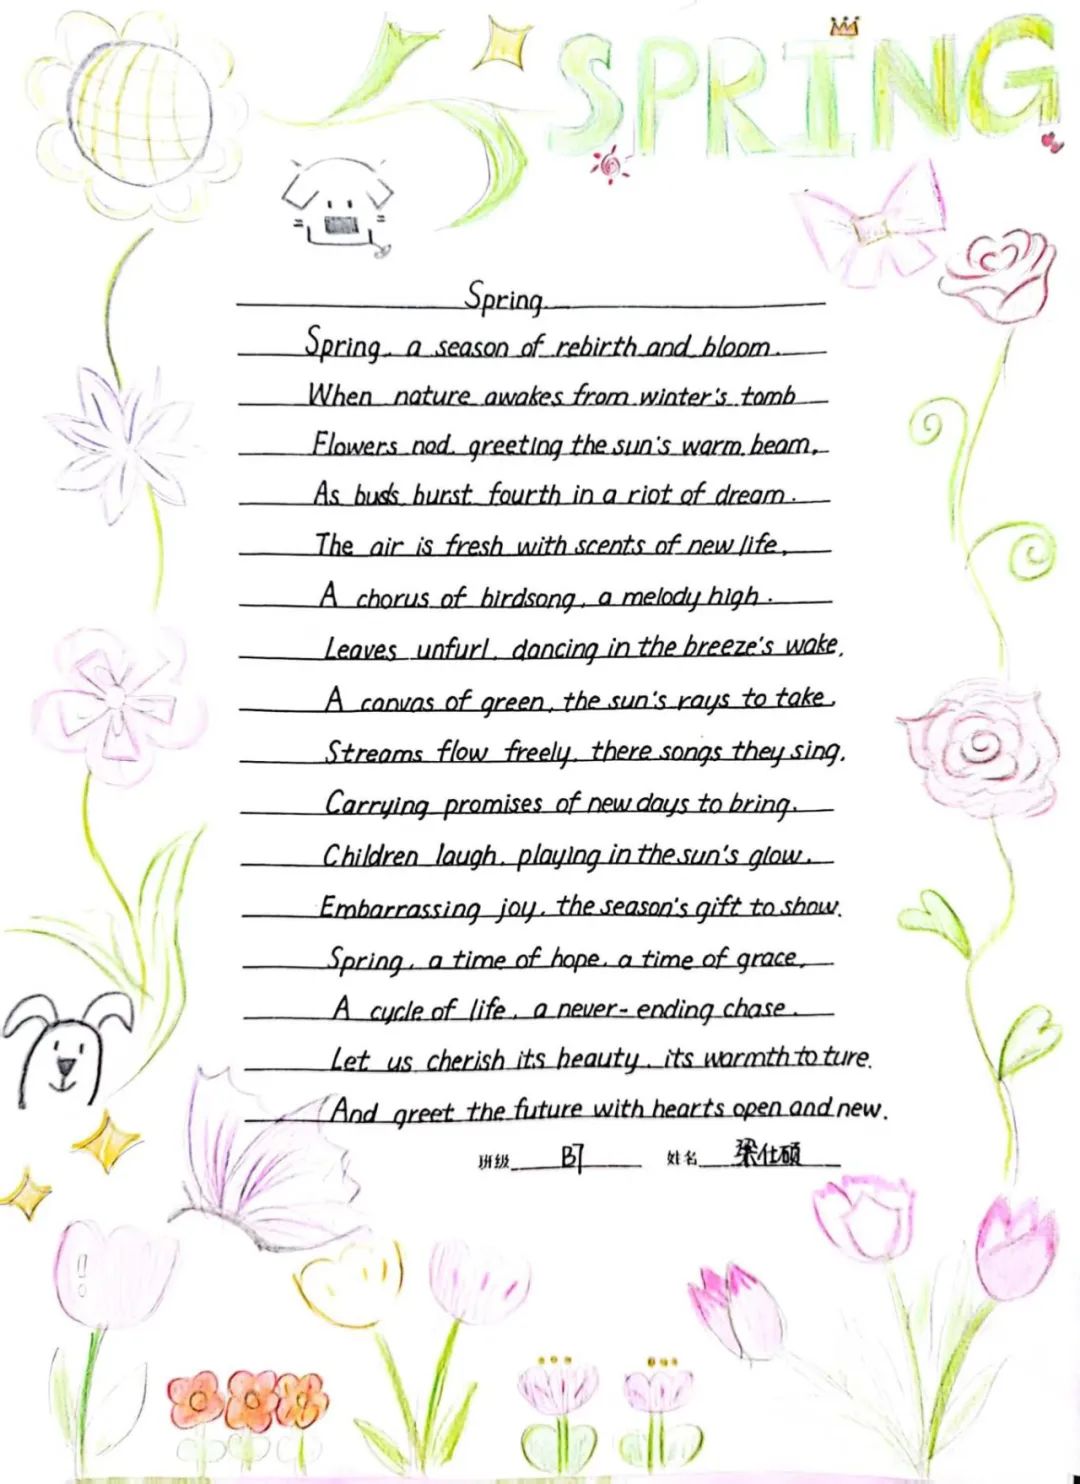 SPRING
Spring.
Spring, a season of rebirth and bloom.
When nature awakes from winter's tomb
Flowers nod, greeting the sun's warm beam,
As buds burst fourth in a riot of dream.
The air is fresh with scents of new life,
A chorus of birdsong, a melody high.
Leaves unfurl, dancing in the breeze's wake,
A canvas of green, the sun's rays to take,
Streams flow freely, there songs they sing,
Carrying promises of new days to bring.
Children laugh, playing in the sun's glow,
Embarrassing joy, the season's gift to show.
Spring, a time of hope, a time of grace,
A cycle of life, a never-ending chase.
Let us cherish its beauty, its warmth to ture.
And greet the future with hearts open and new.
班级 B7 姓名 梁仕硕